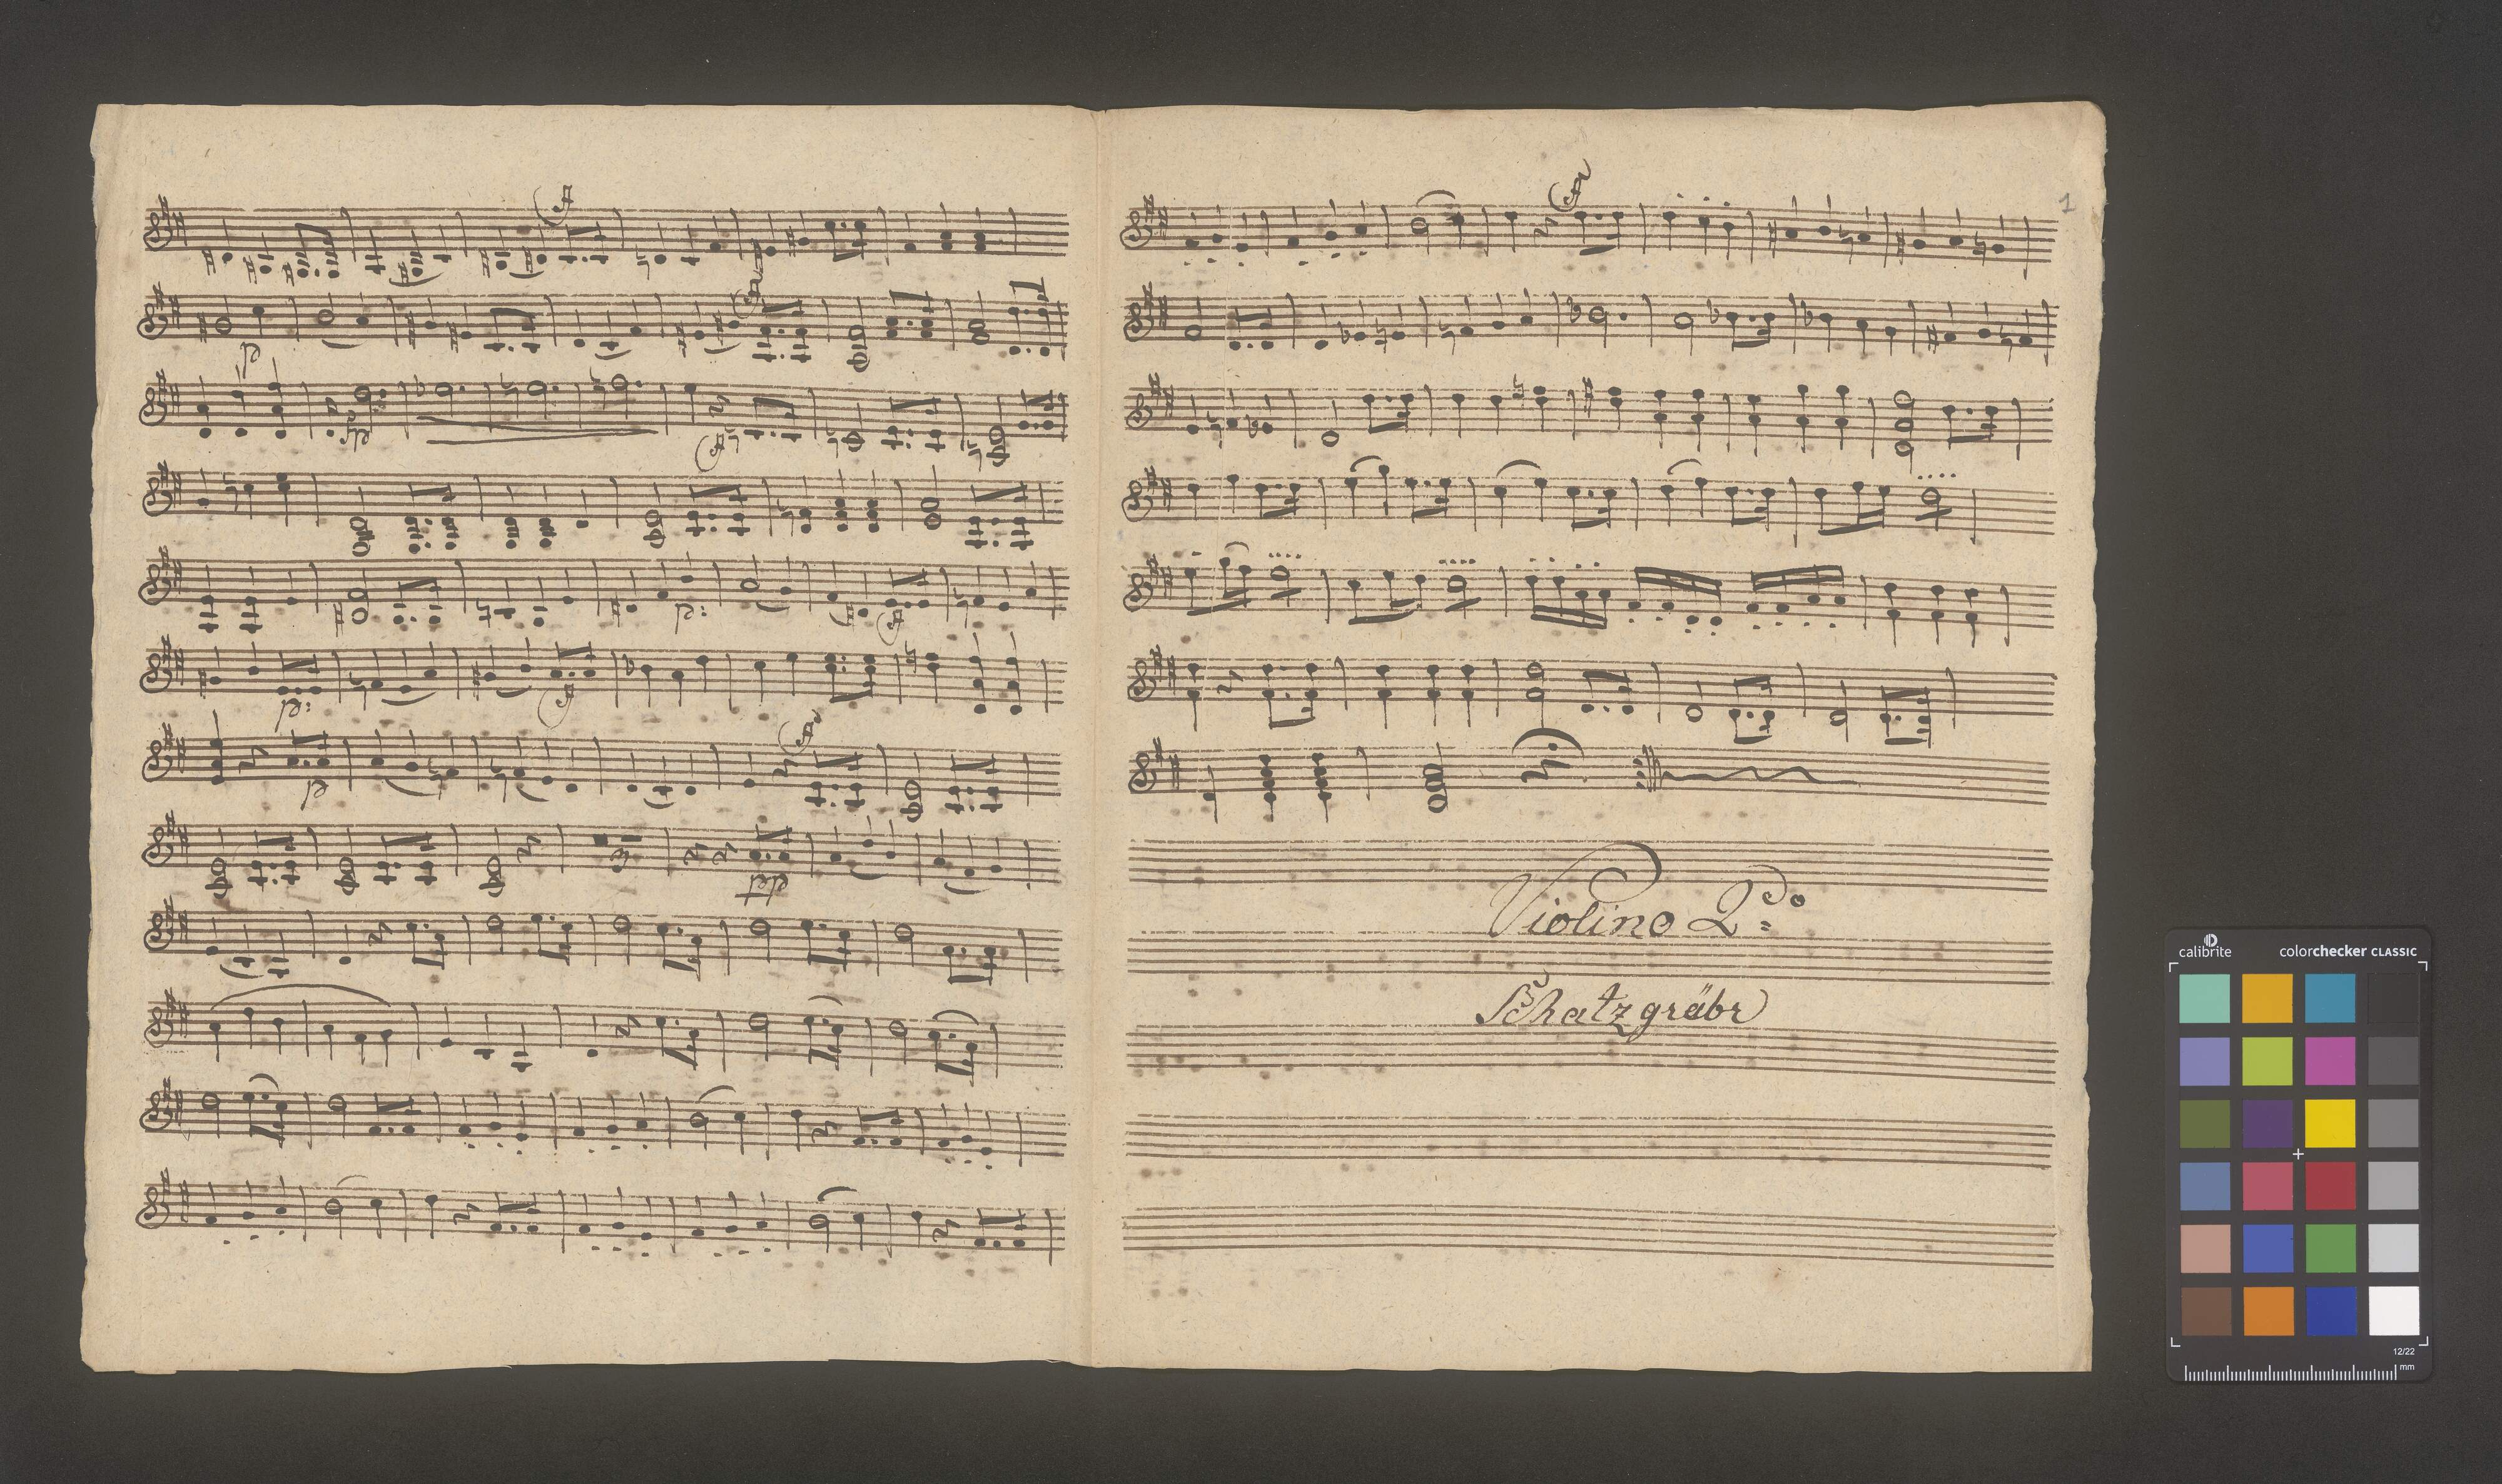 f
p
f
fp
f
p:
f
p:
f
p
f
pp
1
f
Violino 2do
Schatzgräbr
calibrite colorchecker CLASSIC
12/22
mm